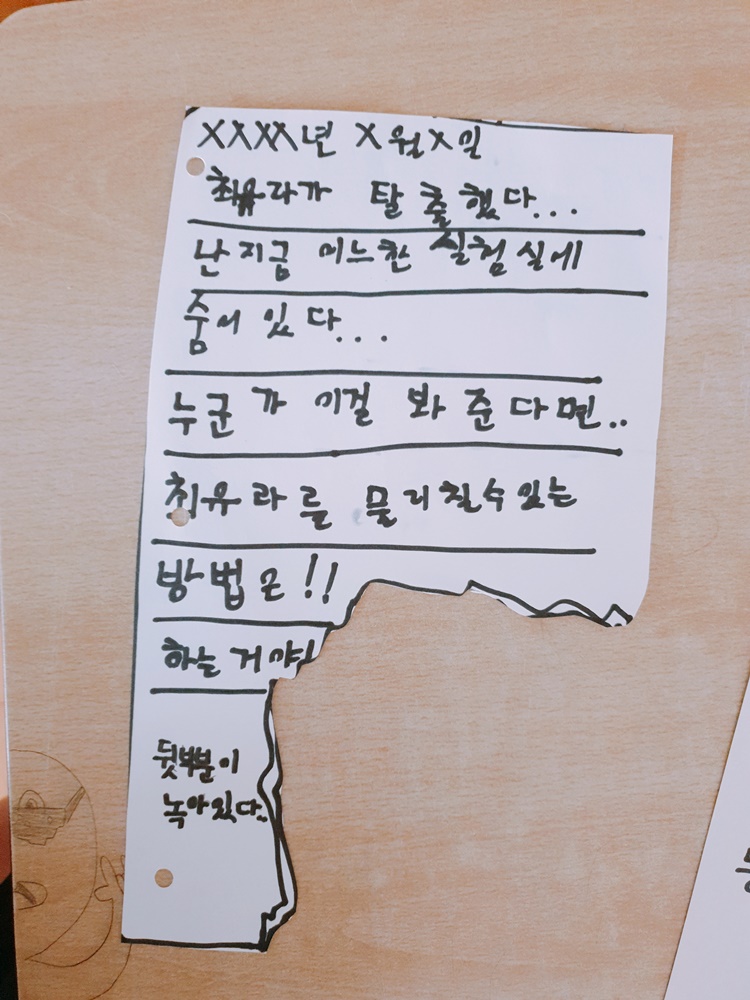 XXXX년 X월X일
최유라가 탈출했다...
난지금 어느한 실험실에
숨어있다...
누군가 이걸 봐준다면..
최유라를 물리칠수있는
방법은!!
하는거야!
뒷부분이
녹아있다..